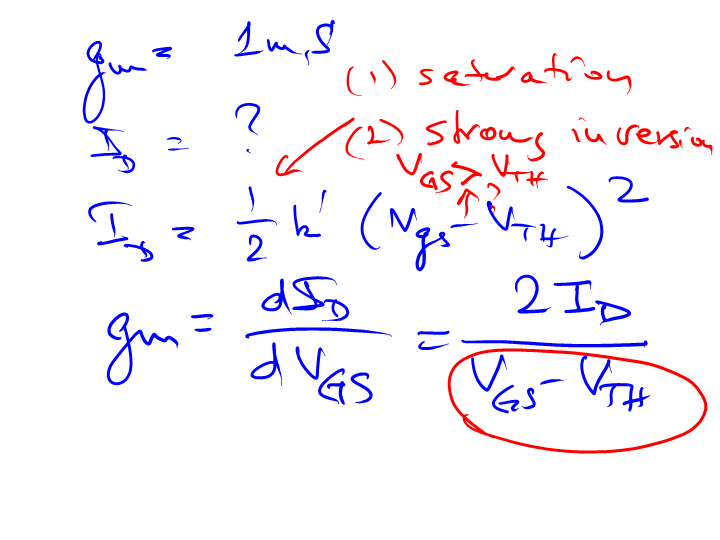 gm = 1m,S
(1) saturation
I_D = ?
(2) strong inversion
V_GS > V_TH
?
I_D = 1/2 k' (V_gs - V_TH)^2
gm = dI_D/dV_GS = 2I_D/(V_GS - V_TH)